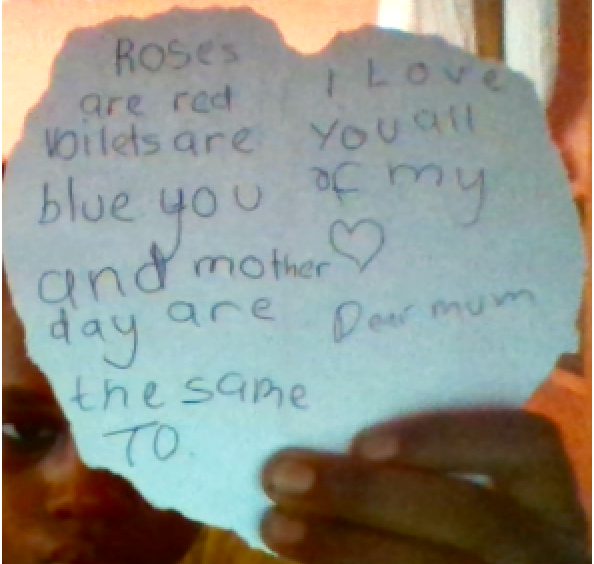 Roses
are red
voilets are
blue you
and mother
day are
the same
TO.
I Love
you all
of my
♡
Dear mum